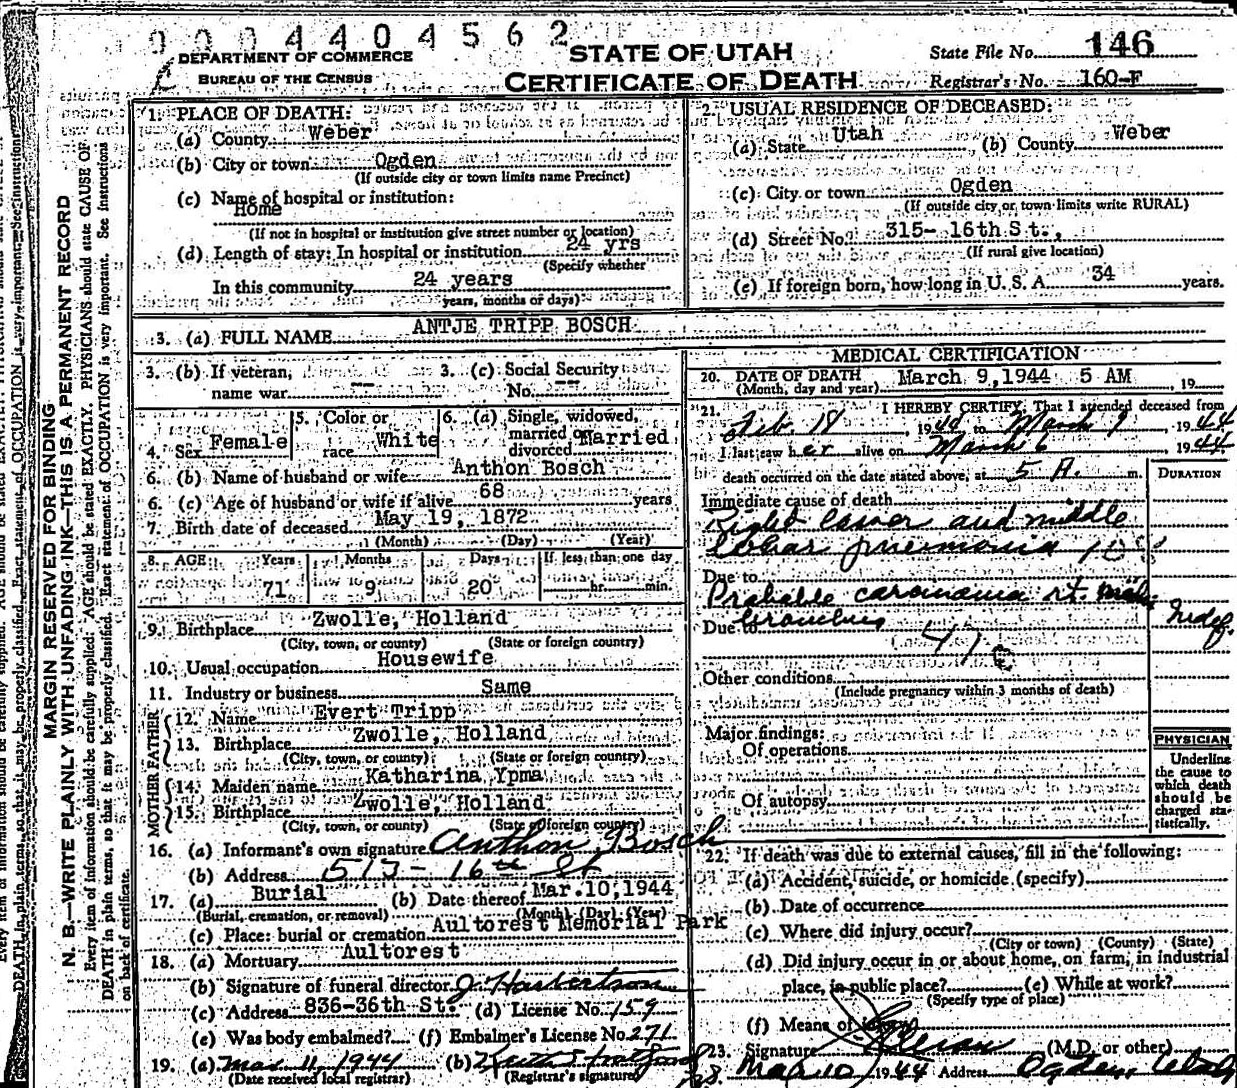 0004404562
DEPARTMENT OF COMMERCE
BUREAU OF THE CENSUS
STATE OF UTAH
CERTIFICATE OF DEATH
State File No. 146
Registrar's No. 160-F
MARGIN RESERVED FOR BINDING
N. B.—WRITE PLAINLY WITH UNFADING INK—THIS IS A PERMANENT RECORD
Every item of information should be carefully supplied. AGE should be stated EXACTLY. PHYSICIANS should state CAUSE OF
DEATH in plain terms, so that it may be properly classified. Exact statement of OCCUPATION is very important. See Instructions
on back of certificate.
1. PLACE OF DEATH:
(a) County Weber
(b) City or town Ogden
(If outside city or town limits name Precinct)
(c) Name of hospital or institution:
Home
(If not in hospital or institution give street number or location)
(d) Length of stay: In hospital or institution 24 yrs
(Specify whether
In this community 24 years
years, months or days)
2. USUAL RESIDENCE OF DECEASED:
(a) State Utah (b) County Weber
(c) City or town Ogden
(If outside city or town limits write RURAL)
(d) Street No. 315- 16th St.,
(If rural give location)
(e) If foreign born, how long in U. S. A. 34 years.
3. (a) FULL NAME ANTJE TRIPP BOSCH
3. (b) If veteran, name war -- 3. (c) Social Security No. --
4. Sex Female 5. Color or race White 6. (a) Single, widowed, married or divorced Married
6. (b) Name of husband or wife Anthon Bosch
6. (c) Age of husband or wife if alive 68 years
7. Birth date of deceased May 19, 1872
(Month) (Day) (Year)
8. AGE: Years Months Days If less than one day
71 9 20 hr. min.
9. Birthplace Zwolle, Holland
(City, town, or county) (State or foreign country)
10. Usual occupation Housewife
11. Industry or business Same
FATHER
12. Name Evert Tripp
13. Birthplace Zwolle, Holland
(City, town, or county) (State or foreign country)
MOTHER
14. Maiden name Katharina Ypma
15. Birthplace Zwolle, Holland
(City, town, or county) (State or foreign country)
16. (a) Informant's own signature Anthon Bosch
(b) Address 16th St
17. (a) Burial (b) Date thereof Mar. 10, 1944
(Burial, cremation, or removal) (Month) (Day) (Year)
(c) Place: burial or cremation Aultorest Memorial Park
18. (a) Mortuary Aultorest
(b) Signature of funeral director J. Harbertson
(c) Address 836-36th St. (d) License No. 159
(e) Was body embalmed? (f) Embalmer's License No. 271
19. (a) Mar 11, 1944 (b)
(Date received local registrar) (Registrar's signature)
MEDICAL CERTIFICATION
20. DATE OF DEATH March 9, 1944 5 AM, 19
(Month, day and year)
21. I HEREBY CERTIFY, That I attended deceased from
Feb. 18 1944 to March 9, 1944
I last saw her alive on March 6 1944
death occurred on the date stated above, at 5 A. m.
DURATION
Immediate cause of death
Right lower and middle
lobar pneumonia
Due to
Probable carcinoma rt. main
bronchus
Due to
Other conditions
(Include pregnancy within 3 months of death)
Major findings:
Of operations
Of autopsy
PHYSICIAN
Underline
the cause to
which death
should be
charged sta-
tistically.
22. If death was due to external causes, fill in the following:
(a) Accident, suicide, or homicide (specify)
(b) Date of occurrence
(c) Where did injury occur?
(City or town) (County) (State)
(d) Did injury occur in or about home, on farm, in industrial
place, in public place? (e) While at work?
(Specify type of place)
(f) Means of
23. Signature (M.D. or other)
Mar 10 1944 Address Ogden, Utah